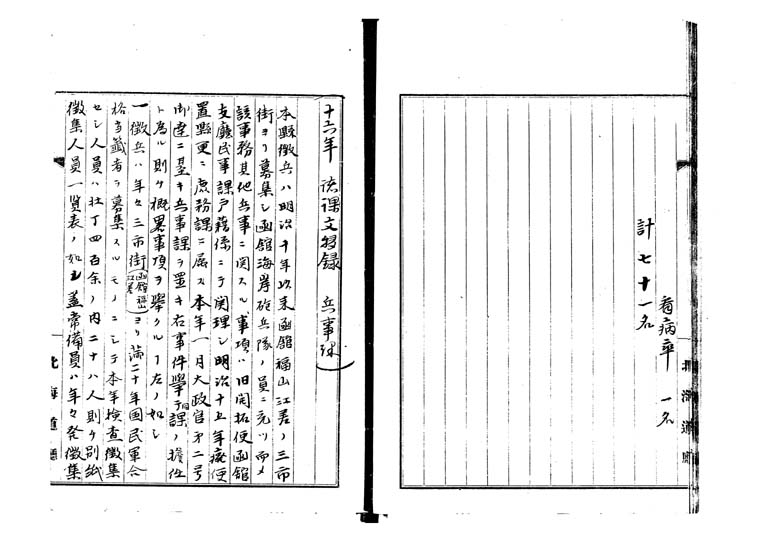 看病卒 一名
計七十一名
十六年 諸課文書録 兵事課
本縣徴兵ハ明治十年以来函館福山江差ノ三市
街ヨリ募集シ函館海岸砲兵隊ノ員ニ充ツ而メ
該事務其他兵事ニ関スル事項ハ旧開拓使函館
支廳民事課戸籍係ニテ関理シ明治十五年廃使
置縣更ニ庶務課ニ属ス本年一月大政官第二号
御達ニ基キ兵事課ヲ置キ右事件挙テ同課ノ擔任
ト為ル則ケ概畧事項ヲ挙クルー左ノ如シ
一徴兵ハ年々三市街(函館福山江差)ヨリ満二十年国民軍合
格当籤者ヲ募集スルモノニシテ本年検査徴集
セシ人員ハ壮丁四百余ノ内二十八人則ケ別紙
徴集人員一覧表ノ如シ蓋常備員ハ年々発徴集
北海道廳